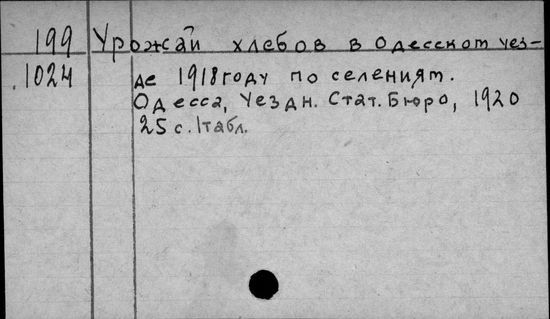 199 Урожай хлебов в Одесском уез-
.1024 де 1918 году по селениям.
Одесса, Уездн. Стат. Бюро, 1920
25 с. 1 табл.